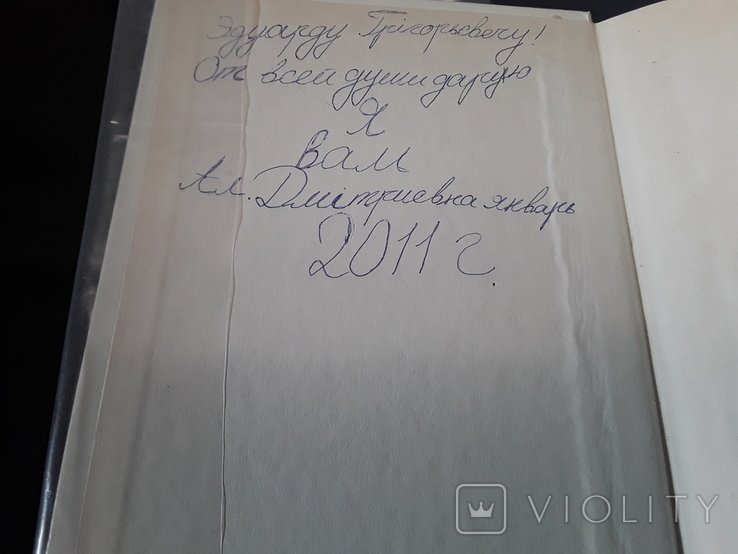 Эдуарду Грігорьевечу!
От всей души дарую
Я
вам
Ал. Дмітриевна январь
2011 г.
VIOLITY